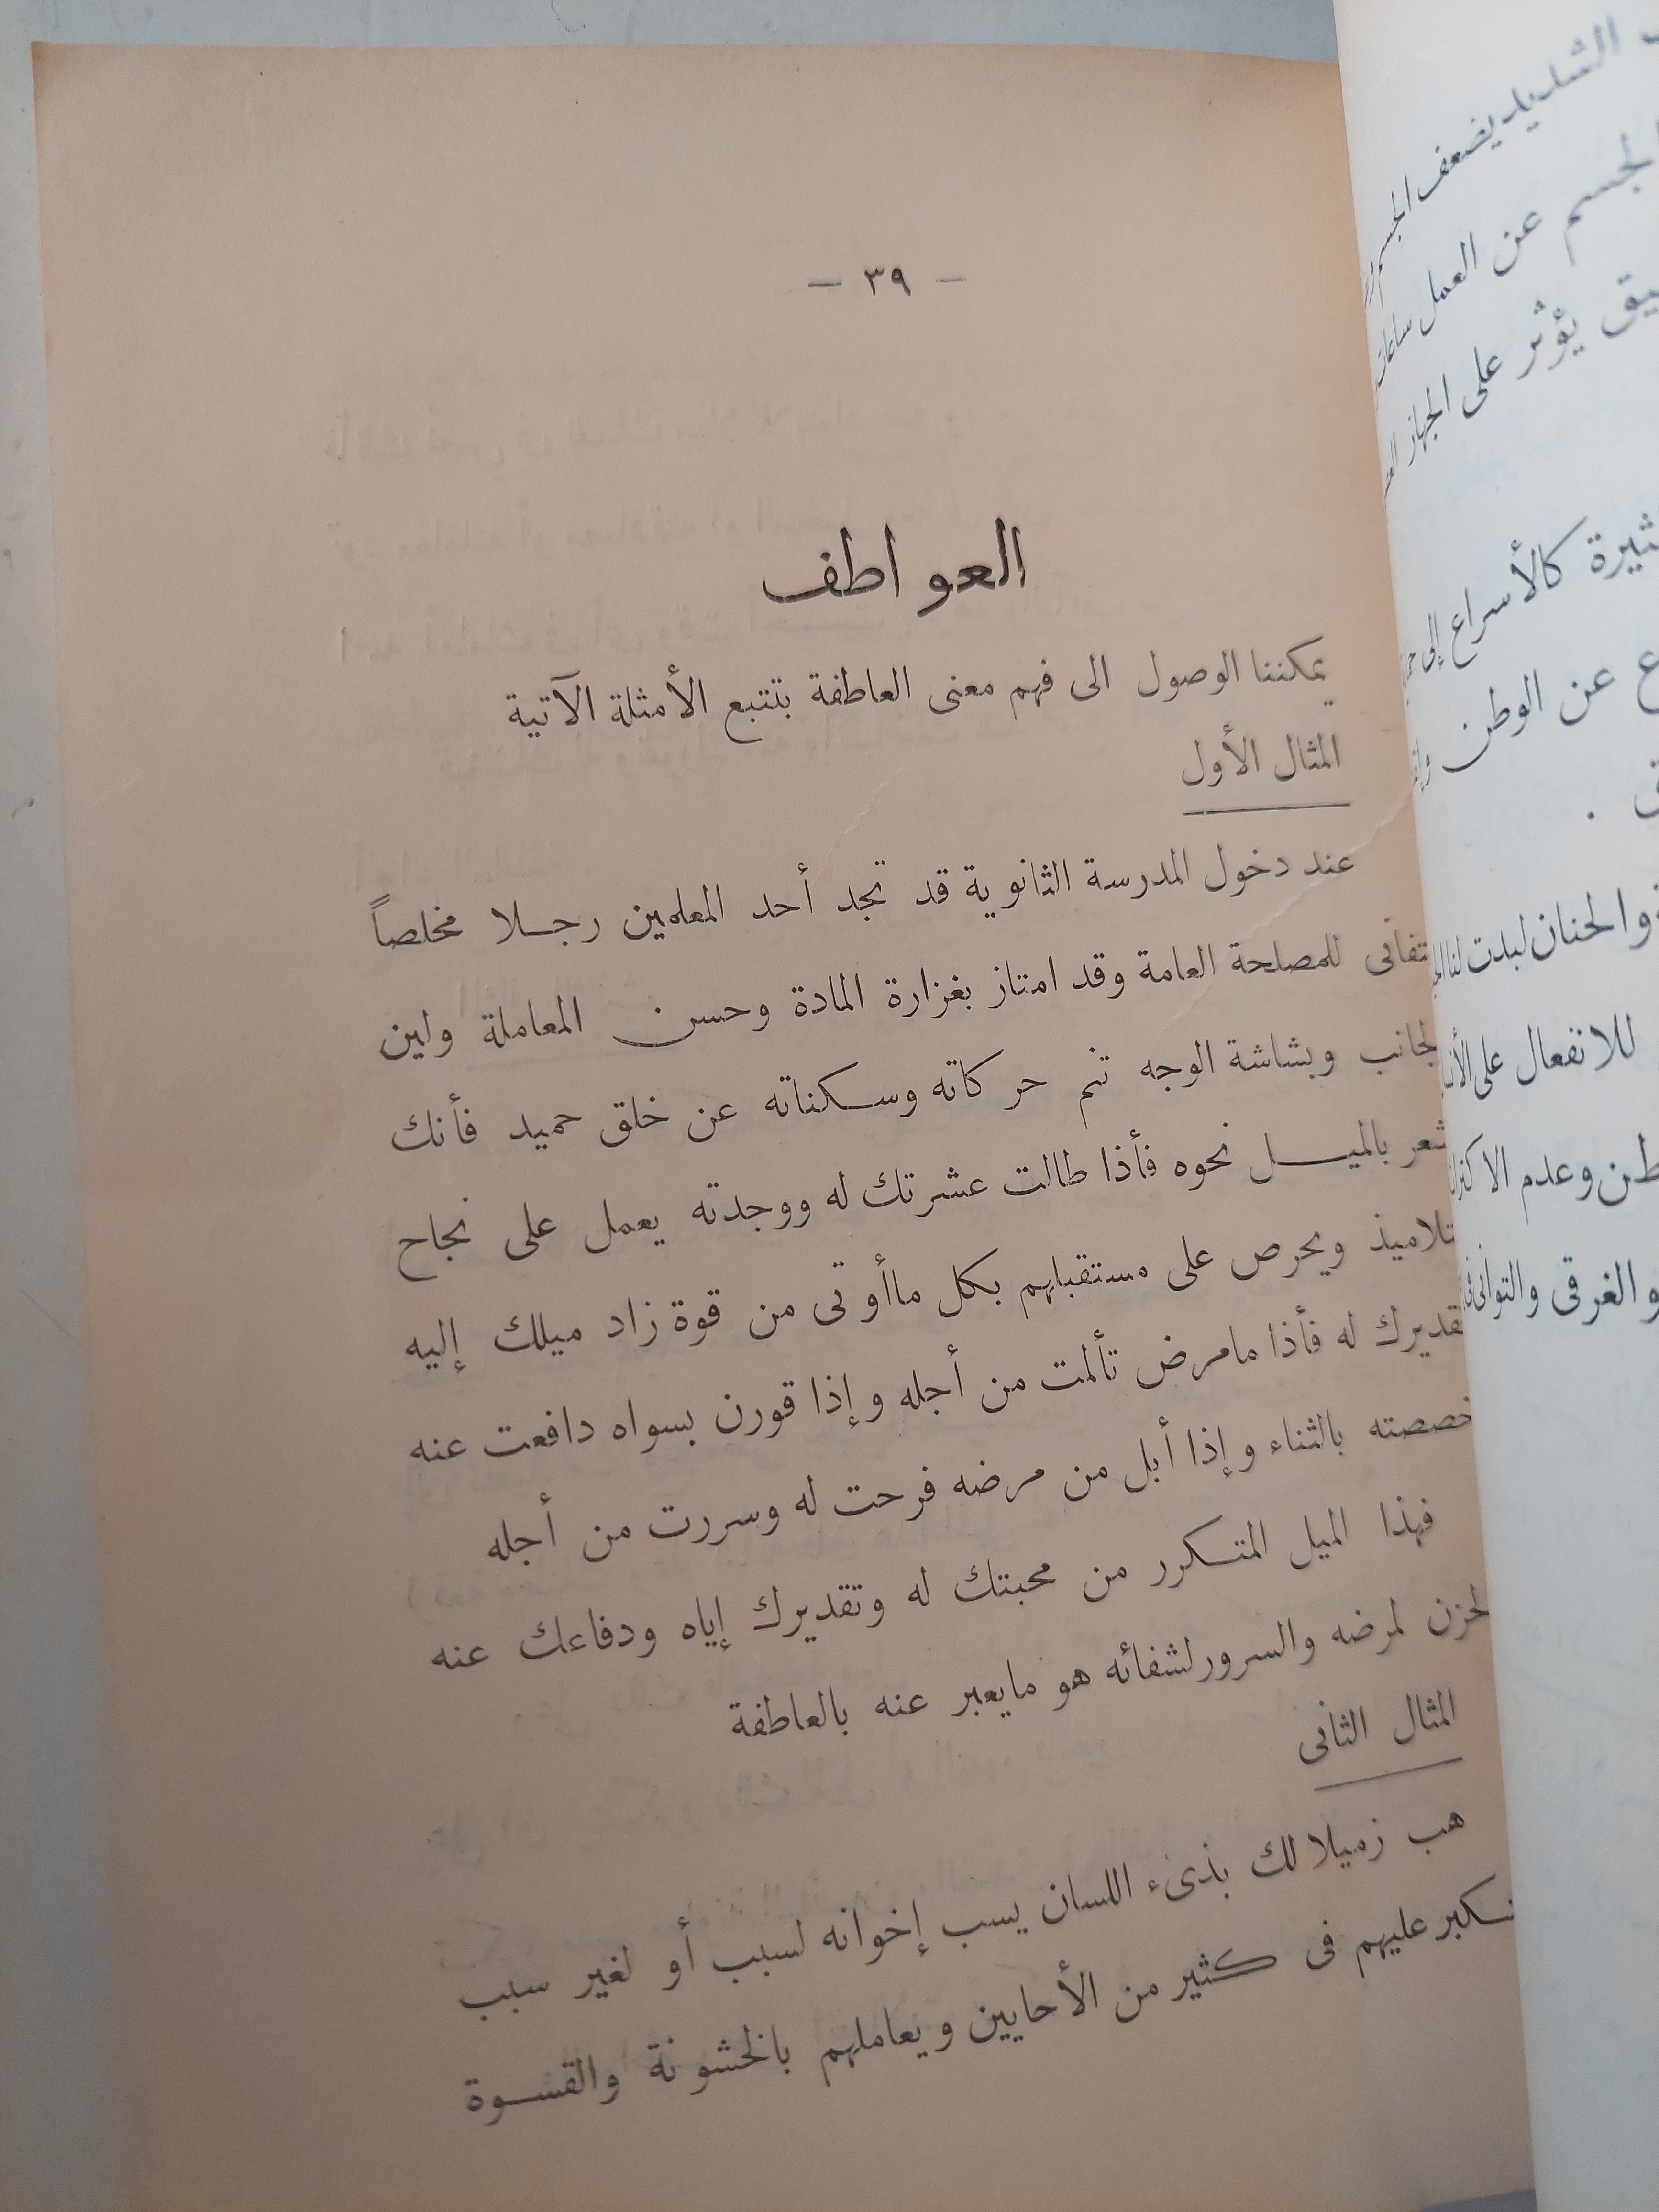 — ٣٩ —
العواطف
يمكننا الوصول الى فهم معنى العاطفة بتتبع الأمثلة الآتية
المثال الأول
عند دخول المدرسة الثانوية قد تجد أحد المعلمين رجلا مخلصاً
تفانى للمصلحة العامة وقد امتاز بغزارة المادة وحسن المعاملة ولين
لجانب وبشاشة الوجه تنم حركاته وسكناته عن خلق حميد فأنك
شعر بالميل نحوه فأذا طالت عشرتك له ووجدته يعمل على نجاح
تلاميذ ويحرص على مستقبلهم بكل ماأوتى من قوة زاد ميلك إليه
قديرك له فأذا مامرض تألمت من أجله وإذا قورن بسواه دافعت عنه
خصصته بالثناء وإذا أبل من مرضه فرحت له وسررت من أجله
فهذا الميل المتكرر من محبتك له وتقديرك إياه ودفاعك عنه
لحزن لمرضه والسرور لشفائه هو مايعبر عنه بالعاطفة
المثال الثانى
هب زميلا لك بذىء اللسان يسب إخوانه لسبب أو لغير سبب
تكبر عليهم فى كثير من الأحايين ويعاملهم بالخشونة والقسوة
الشديد يضعف الجسم
لجسم عن العمل ساعات
يق يؤثر على الجهاز
ثيرة كالأسراع إلى
ع عن الوطن
ق .
والحنان لبدت لنا
للانفعال على
طن وعدم
و الغرقى والتوانى فى